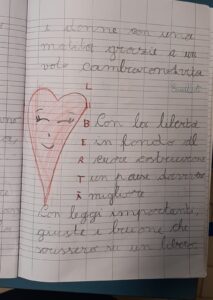 e donne con una
matita grazie a un
voto
LIBERTÀ
Con la libertà
in fondo al
cuore costruirono
un paese davvero
migliore
Con leggi importanti,
giuste e buone che
scrissero su un libro